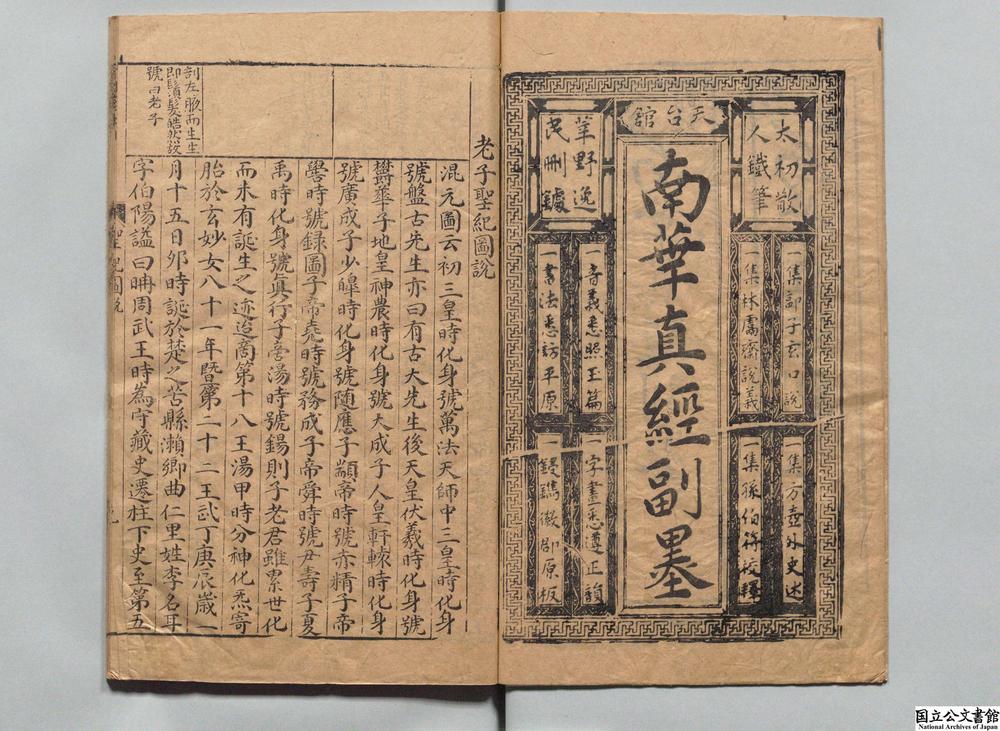 天台館
太初散
人鐵筆
一集郭子玄口說
一集林鬳齋說義
一集方壺外史述
一集孫伯符校釋
南華真經副墨
民刪
一音義悉照玉篇
一書法悉訪平原
一字畫悉遵正韻
原板
老子聖紀圖說
混元圖云初三皇時化身號萬法天師中三皇時化身
號盤古先生亦曰有古大先生後天皇伏羲時化身號
鬱華子地皇神農時化身號大成子人皇軒轅時化身
號廣成子少皞時化身號随應子顓帝時號赤精子帝
嚳時號録圖子帝堯時號務成子帝舜時號尹壽子夏
禹時化身號眞行子啇湯時號錫則子老君雖累世化
而未有誕生之迹迨啇第十八王湯甲時分神化炁寄
胎於玄妙女八十一年暨第二十二王武丁庚辰歲一
月十五日夘時誕於楚之苦縣瀨鄉曲仁里姓李名耳
字伯陽謚曰聃周武王時爲守藏史遷柱下史至第五
剖左腋而生生
即鬚髮皓然故
號曰老子
聖紀圖說
国立公文書館
National Archives of Japan